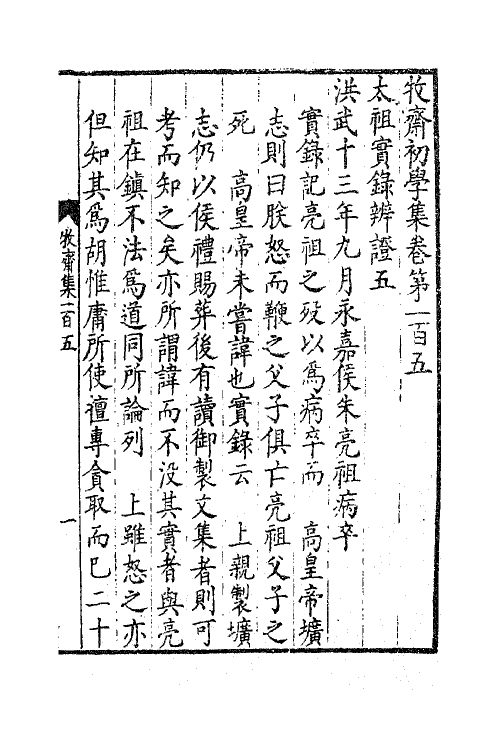 牧齋初學集卷第一百五
太祖實錄辨證五
洪武十三年九月永嘉侯朱亮祖病卒
實錄記亮祖之殁以爲病卒而 高皇帝壙
志則曰朕怒而鞭之父子俱亡亮祖父子之
死 高皇帝未嘗諱也實錄云 上親製壙
志仍以侯禮賜葬後有讀御製文集者則可
考而知之矣亦所謂諱而不没其實者與亮
祖在鎮不法爲道同所論列 上雖怒之亦
但知其爲胡惟庸所使擅專貪取而已二十
牧齋集一百五
一